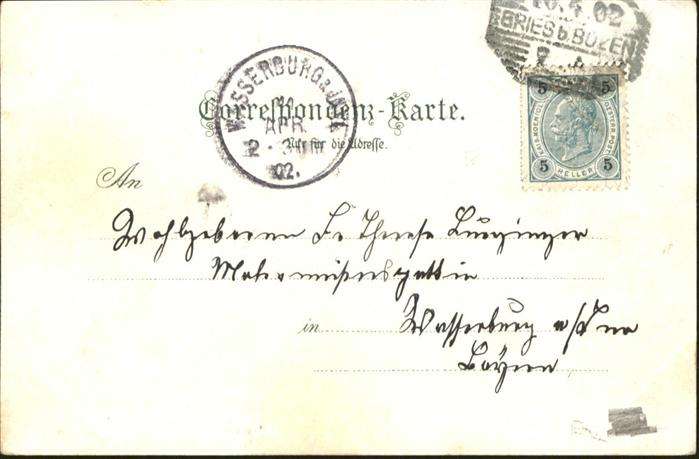 10.4.02
GRIES b. BOZEN
WASSERBURG a. INN
APR.
02.
Correspondenz-Karte.
Nur für die Adresse.
5 5
KAIS. KOENIGL. OESTERR. POST.
5 HELLER 5
An
Wohlgeboren Fr Therese
in Wasserburg a/Inn
Bayern